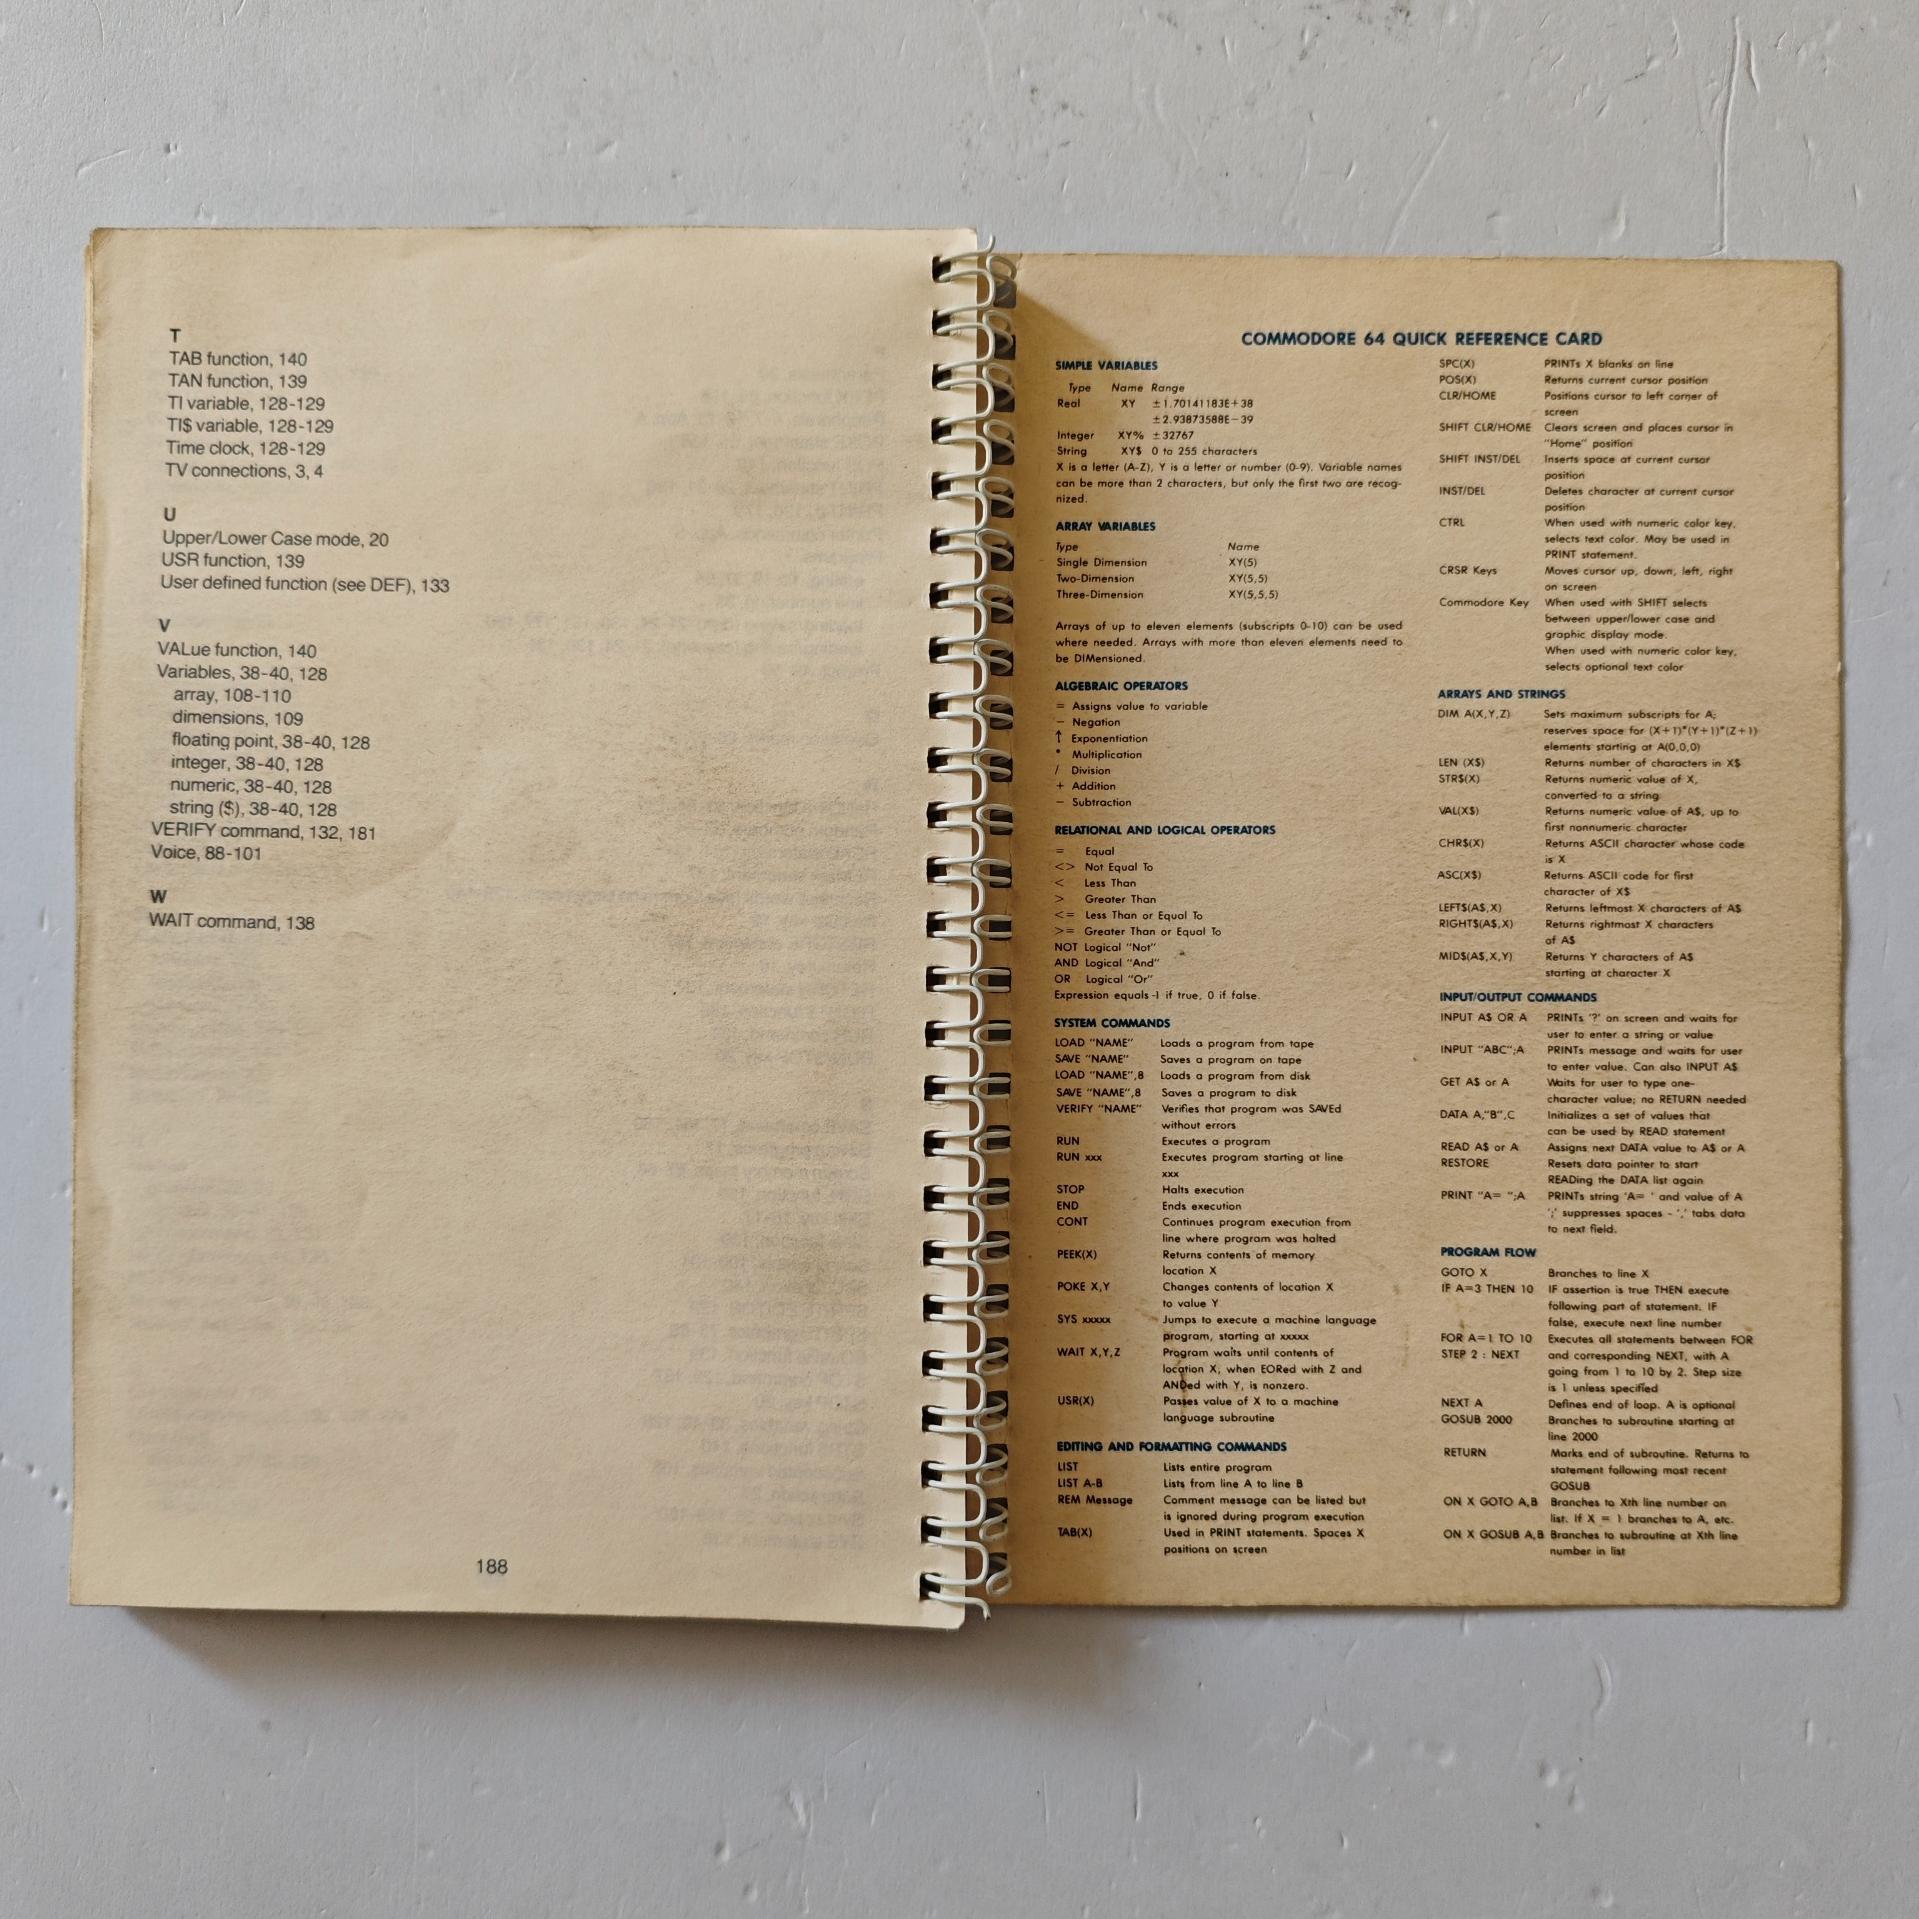 T
TAB function, 140
TAN function, 139
TI variable, 128-129
TI$ variable, 128-129
Time clock, 128-129
TV connections, 3, 4
U
Upper/Lower Case mode, 20
USR function, 139
User defined function (see DEF), 133
V
VALue function, 140
Variables, 38-40, 128
array, 108-110
dimensions, 109
floating point, 38-40, 128
integer, 38-40, 128
numeric, 38-40, 128
string ($), 38-40, 128
VERIFY command, 132, 181
Voice, 88-101
W
WAIT command, 138
188
COMMODORE 64 QUICK REFERENCE CARD
SIMPLE VARIABLES
Type Name Range
Real XY ±1.70141183E+38
±2.93873588E-39
Integer XY% ±32767
String XY$ 0 to 255 characters
X is a letter (A-Z), Y is a letter or number (0-9). Variable names
can be more than 2 characters, but only the first two are recog-
nized.
ARRAY VARIABLES
Type Name
Single Dimension XY(5)
Two-Dimension XY(5,5)
Three-Dimension XY(5,5,5)
Arrays of up to eleven elements (subscripts 0-10) can be used
where needed. Arrays with more than eleven elements need to
be DIMensioned.
ALGEBRAIC OPERATORS
= Assigns value to variable
− Negation
↑ Exponentiation
* Multiplication
/ Division
+ Addition
− Subtraction
RELATIONAL AND LOGICAL OPERATORS
= Equal
<> Not Equal To
< Less Than
> Greater Than
<= Less Than or Equal To
>= Greater Than or Equal To
NOT Logical "Not"
AND Logical "And"
OR Logical "Or"
Expression equals -1 if true, 0 if false.
SYSTEM COMMANDS
LOAD "NAME" Loads a program from tape
SAVE "NAME" Saves a program on tape
LOAD "NAME",8 Loads a program from disk
SAVE "NAME",8 Saves a program to disk
VERIFY "NAME" Verifies that program was SAVEd
without errors
RUN Executes a program
RUN xxx Executes program starting at line
xxx
STOP Halts execution
END Ends execution
CONT Continues program execution from
line where program was halted
PEEK(X) Returns contents of memory
location X
POKE X,Y Changes contents of location X
to value Y
SYS xxxxx Jumps to execute a machine language
program, starting at xxxxx
WAIT X,Y,Z Program waits until contents of
location X, when EORed with Z and
ANDed with Y, is nonzero.
USR(X) Passes value of X to a machine
language subroutine
EDITING AND FORMATTING COMMANDS
LIST Lists entire program
LIST A-B Lists from line A to line B
REM Message Comment message can be listed but
is ignored during program execution
TAB(X) Used in PRINT statements. Spaces X
positions on screen
SPC(X) PRINTs X blanks on line
POS(X) Returns current cursor position
CLR/HOME Positions cursor to left corner of
screen
SHIFT CLR/HOME Clears screen and places cursor in
"Home" position
SHIFT INST/DEL Inserts space at current cursor
position
INST/DEL Deletes character at current cursor
position
CTRL When used with numeric color key,
selects text color. May be used in
PRINT statement.
CRSR Keys Moves cursor up, down, left, right
on screen
Commodore Key When used with SHIFT selects
between upper/lower case and
graphic display mode.
When used with numeric color key,
selects optional text color
ARRAYS AND STRINGS
DIM A(X,Y,Z) Sets maximum subscripts for A;
reserves space for (X+1)*(Y+1)*(Z+1)
elements starting at A(0,0,0)
LEN (X$) Returns number of characters in X$
STR$(X) Returns numeric value of X,
converted to a string
VAL(X$) Returns numeric value of A$, up to
first nonnumeric character
CHR$(X) Returns ASCII character whose code
is X
ASC(X$) Returns ASCII code for first
character of X$
LEFT$(A$,X) Returns leftmost X characters of A$
RIGHT$(A$,X) Returns rightmost X characters
of A$
MID$(A$,X,Y) Returns Y characters of A$
starting at character X
INPUT/OUTPUT COMMANDS
INPUT A$ OR A PRINTs '?' on screen and waits for
user to enter a string or value
INPUT "ABC";A PRINTs message and waits for user
to enter value. Can also INPUT A$
GET A$ or A Waits for user to type one-
character value; no RETURN needed
DATA A,"B",C Initializes a set of values that
can be used by READ statement
READ A$ or A Assigns next DATA value to A$ or A
RESTORE Resets data pointer to start
READing the DATA list again
PRINT "A= ";A PRINTs string 'A= ' and value of A
';' suppresses spaces - ',' tabs data
to next field.
PROGRAM FLOW
GOTO X Branches to line X
IF A=3 THEN 10 IF assertion is true THEN execute
following part of statement. IF
false, execute next line number
FOR A=1 TO 10 Executes all statements between FOR
STEP 2 : NEXT and corresponding NEXT, with A
going from 1 to 10 by 2. Step size
is 1 unless specified
NEXT A Defines end of loop. A is optional
GOSUB 2000 Branches to subroutine starting at
line 2000
RETURN Marks end of subroutine. Returns to
statement following most recent
GOSUB
ON X GOTO A,B Branches to Xth line number on
list. If X = 1 branches to A, etc.
ON X GOSUB A,B Branches to subroutine at Xth line
number in list